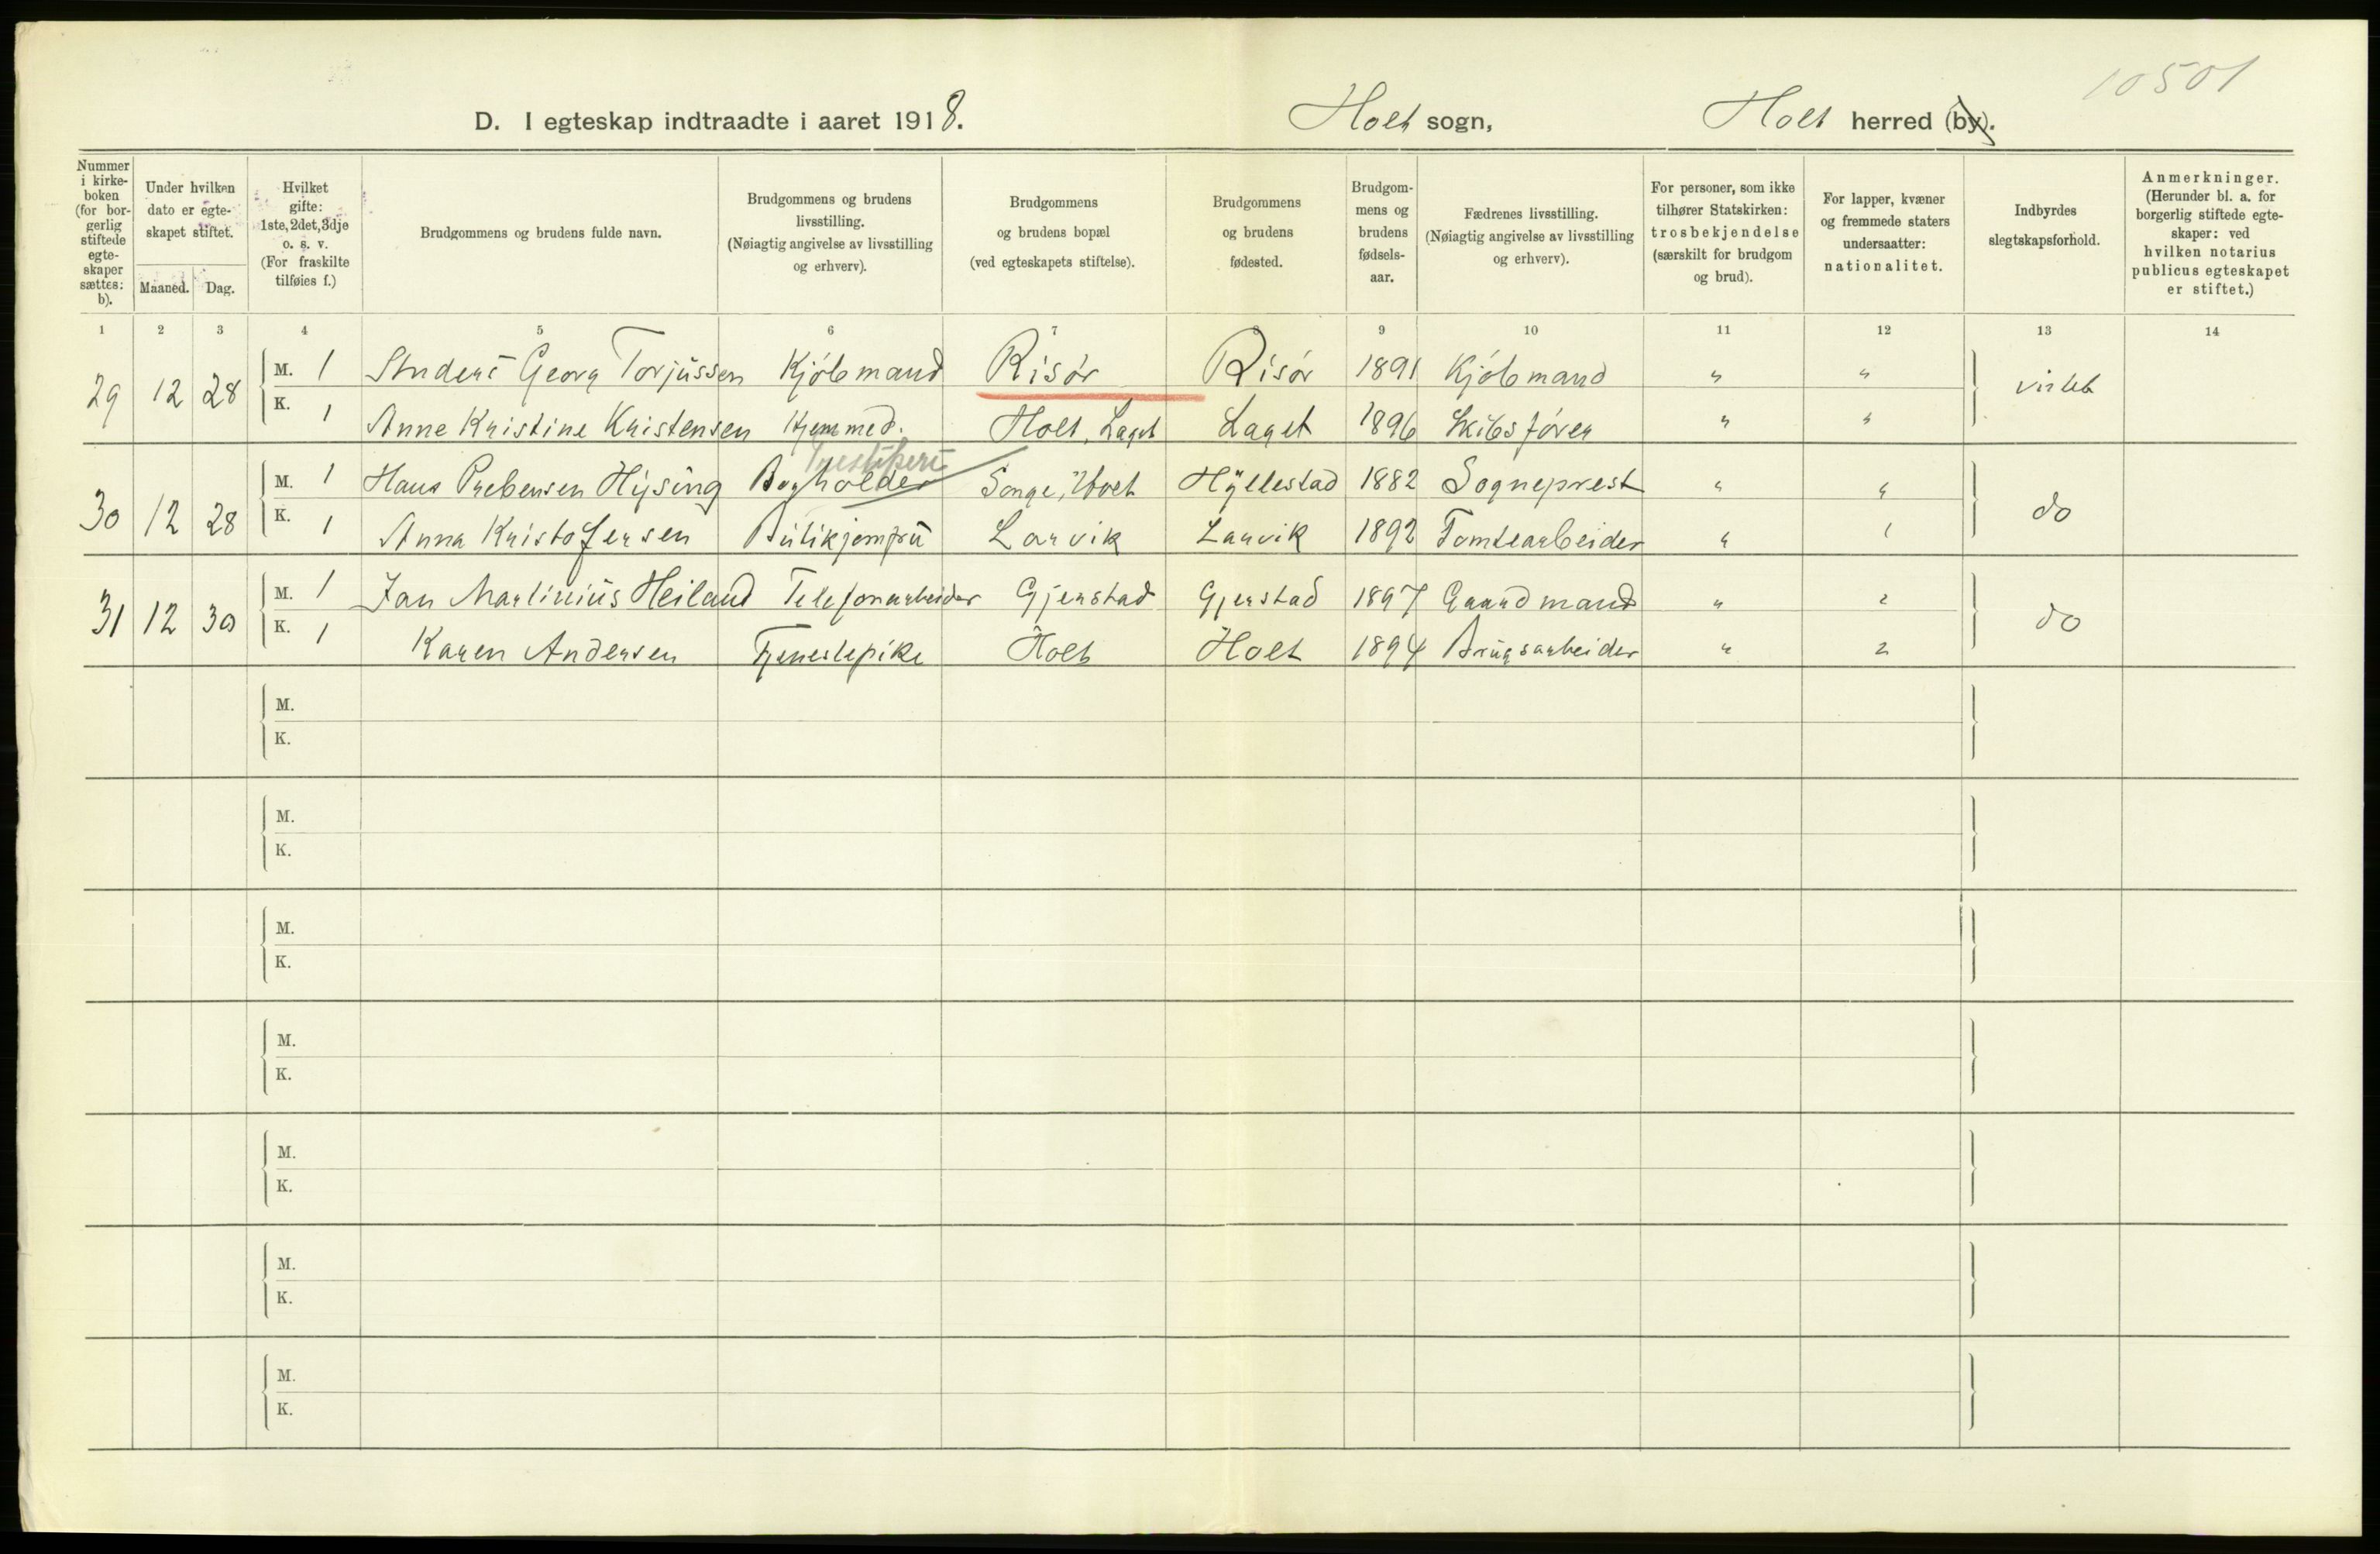 10501
D. I egteskap indtraadte i aaret 1918. Holt sogn, Holt herred (by).
Nummer i kirke- boken (for bor- gerlig stiftede egte- skaper sættes: b).
Under hvilken dato er egte- skapet stiftet.
Maaned. Dag.
Hvilket gifte: 1ste, 2det, 3dje o. s. v. (For fraskilte tilføies f.)
Brudgommens og brudens fulde navn.
Brudgommens og brudens livsstilling. (Nøiagtig angivelse av livsstilling og erhverv).
Brudgommens og brudens bopæl (ved egteskapets stiftelse).
Brudgommens og brudens fødested.
Brudgom- mens og brudens fødsels- aar.
Fædrenes livsstilling. (Nøiagtig angivelse av livsstilling og erhverv).
For personer, som ikke tilhører Statskirken: trosbekjendelse (særskilt for brudgom og brud).
For lapper, kvæner og fremmede staters undersaatter: nationalitet.
Indbyrdes slegtskapsforhold.
Anmerkninger. (Herunder bl. a. for borgerlig stiftede egte- skaper: ved hvilken notarius publicus egteskapet er stiftet.)
1 2 3 4 5 6 7 8 9 10 11 12 13 14
29 12 28 M. 1 Anders Georg Torjussen Kjöbmand Risør Risør 1891 Kjöbmand " "
K. 1 Anne Kristine Kristensen Hjemmed. Holt, Laget Laget 1896 Skibsfører " "
30 12 28 M. 1 Hans Prebensen Hysing Bogholder Songe, Holt Hyllestad 1882 Sogneprest " " do
K. 1 Anna Kristofersen Butikjomfru Larvik Larvik 1892 Tomtearbeider "
31 12 30 M. 1 Jan Martinius Heiland Telefonarbeider Gjerstad Gjerstad 1897 Gaardmand " " do
K. 1 Karen Andersen Tjenestepike Holt Holt 1894 Brugsarbeider " "
M.
K.
M.
K.
M.
K.
M.
K.
M.
K.
M.
K.
M.
K.